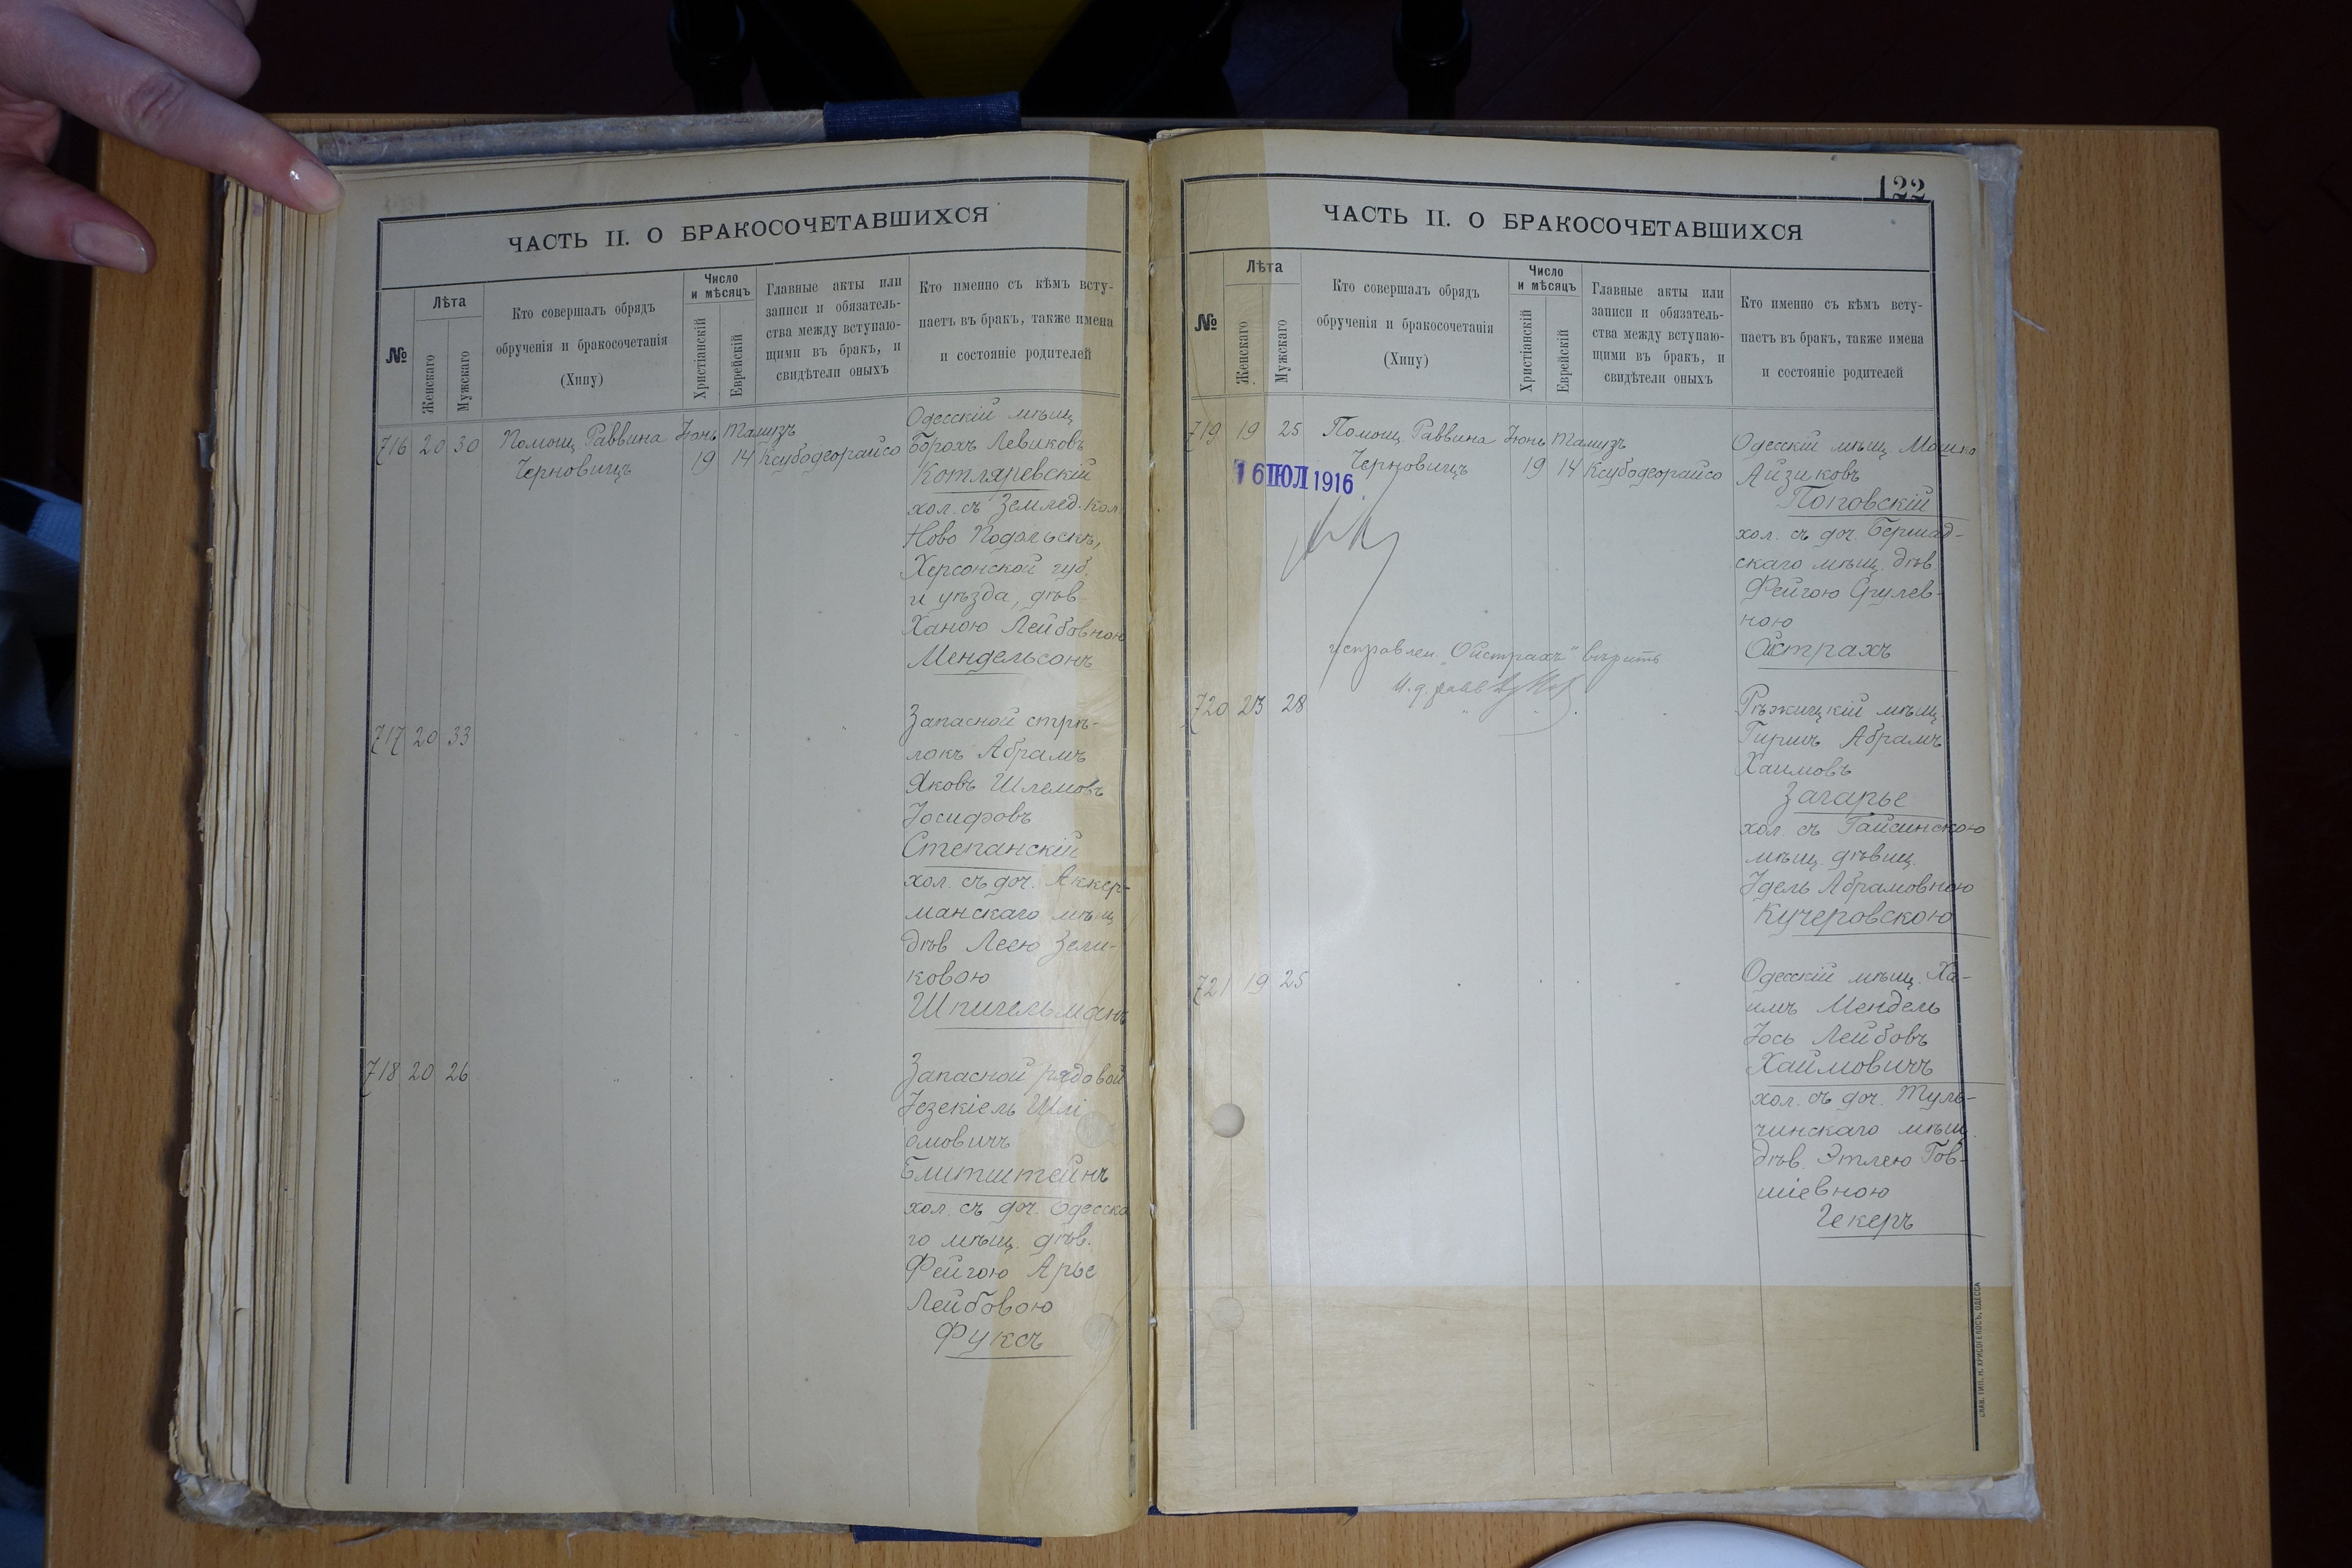 ЧАСТЬ II. О БРАКОСОЧЕТАВШИХСЯ
№
Лѣта
Женскаго
Мужскаго
Кто совершалъ обрядъ
обрученія и бракосочетанія
(Хипу)
Число
и мѣсяцъ
Христіанскій
Еврейскій
Главные акты или
записи и обязатель-
ства между вступаю-
щими въ бракъ, и
свидѣтели оныхъ
Кто именно съ кѣмъ всту-
паетъ въ бракъ, также имена
и состояніе родителей
716 20 30 Помощ. Раввина Іюнь Тамузъ
Черновицъ 19 14 Ксубодеорайсо
Одесскій мѣщ.
Борохъ Левиковъ
Котляревскій
хол. съ Землед. кол.
Ново Подольскъ,
Херсонской губ.
и уѣзда, дѣв.
Ханою Лейбовною
Мендельсонъ
717 20 33
Запасной стрѣ-
локъ Абрамъ
Яковъ Шлемовъ
Іосифовъ
Степанскій
хол. съ доч. Аккер-
манскаго мѣщ.
дѣв. Леею Зели-
ковою
Шпигельманъ
718 20 26
Запасной рядовой
Іезекіель Шлі
омовичъ
Блитштейнъ
хол. съ доч. Одесска
го мѣщ. дѣв.
Фейгою Арье
Лейбовою
Фуксъ
122
ЧАСТЬ II. О БРАКОСОЧЕТАВШИХСЯ
№
Лѣта
Женскаго
Мужскаго
Кто совершалъ обрядъ
обрученія и бракосочетанія
(Хипу)
Число
и мѣсяцъ
Христіанскій
Еврейскій
Главные акты или
записи и обязатель-
ства между вступаю-
щими въ бракъ, и
свидѣтели оныхъ
Кто именно съ кѣмъ всту-
паетъ въ бракъ, также имена
и состояніе родителей
719 19 25 Помощ. Раввина Іюнь Тамузъ
Черновицъ 19 14 Ксубодеорайсо
16 ІЮЛ 1916
Одесскій мѣщ. Мошко
Айзиковъ
Поповскій
хол. съ доч. Бершад-
скаго мѣщ. дѣв.
Фейгою Срулев-
ною
Ойстрахъ
исправлен. „Ойстрахъ“ вѣрить
И. д. равв.
720 23 28
Рѣжицкій мѣщ.
Гиршъ Абрамъ
Хаимовъ
Загарье
хол. съ Гайсинскою
мѣщ. дѣвиц.
Идель Абрамовною
Кучеровскою
721 19 25
Одесскій мѣщ. Ха-
имъ Мендель
Іось Лейбовъ
Хаймовичъ
хол. съ доч. Туль-
чинскаго мѣщ.
дѣв. Этлею Гов-
шіевною
Чекеръ
СЛАВ. ТИП. Н. ХРИСОГЕЛОСЪ, ОДЕССА